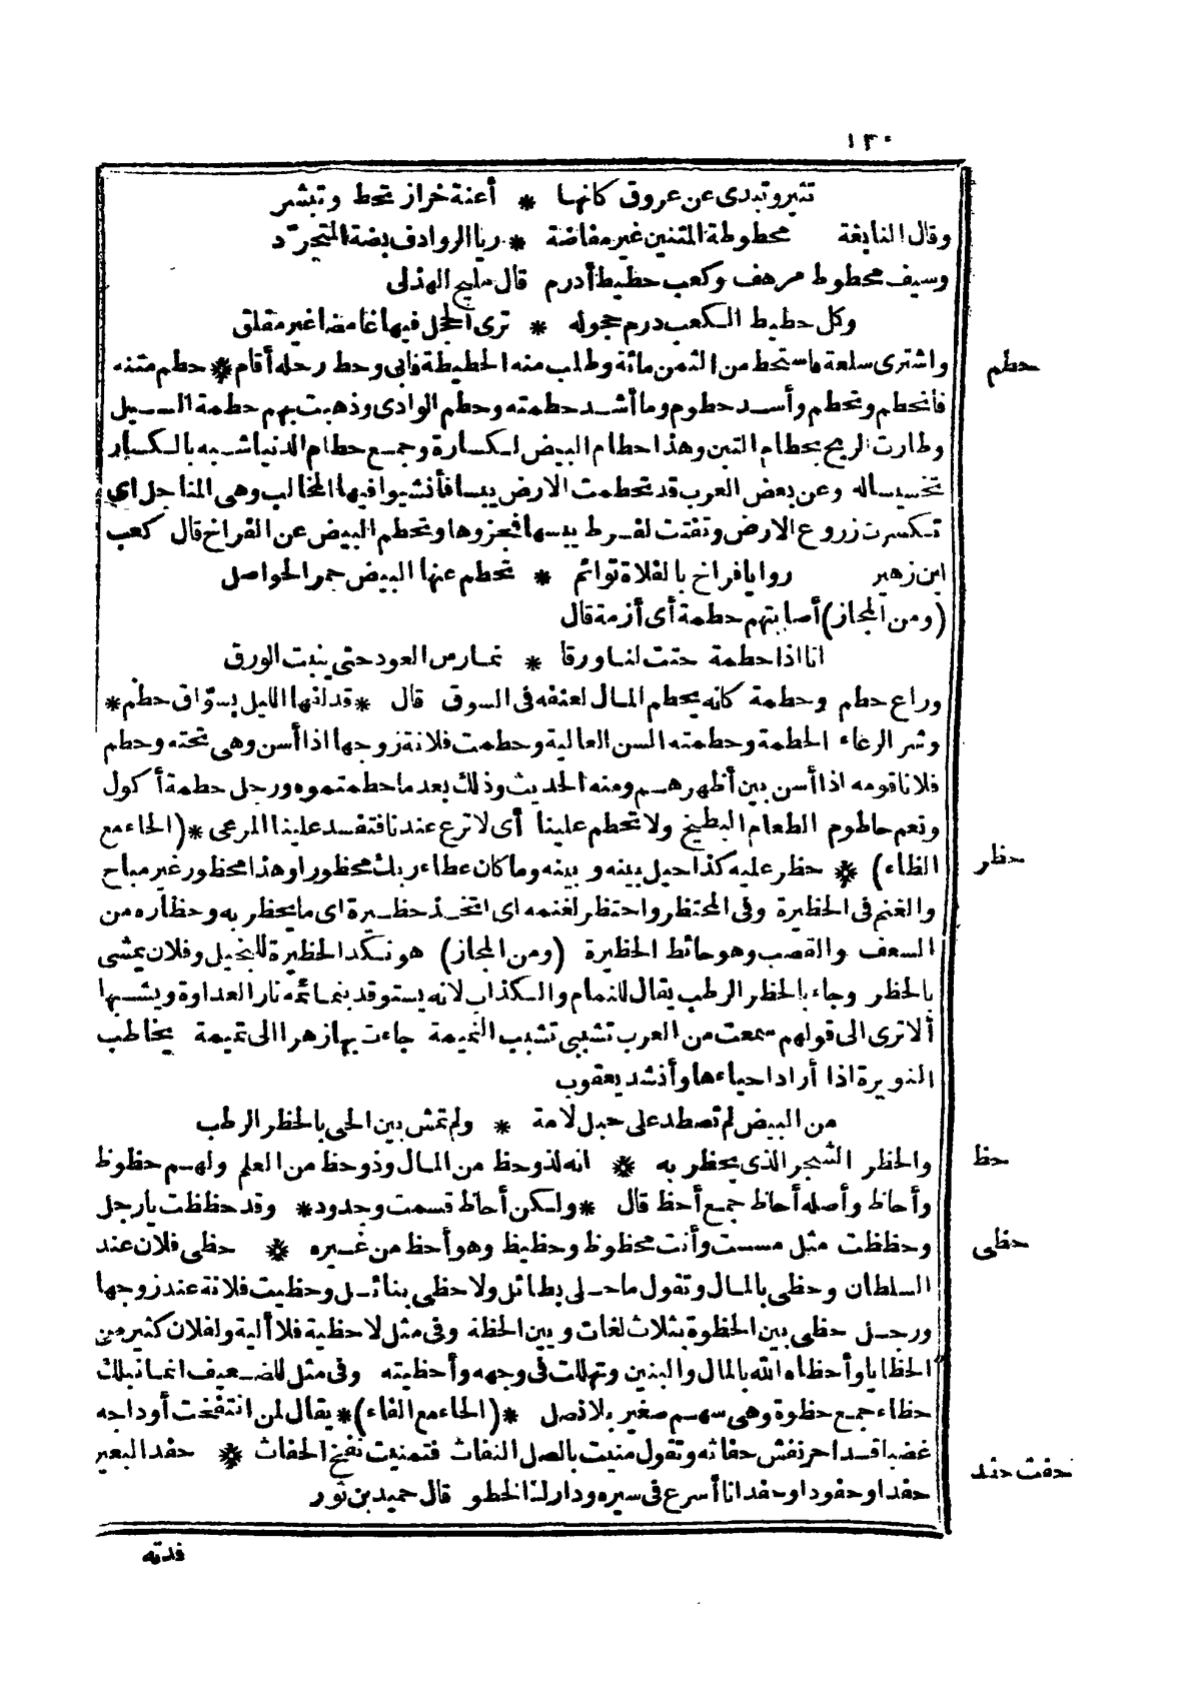 ١٣٠
تثير وتبدى عن عروق كانها * أعنة خراز تحط وتبشر
وقال النابغة محطوطة المتنين غير مفاضة * ريا الروادف بضة المتجرّد
وسيف محطوط مرهف وكعب حظيط أدرم قال مليح الهذلى
وكل حطيط الكعب درم حجوله * ترى الحجل فيها غامضا غير مقلق
حطم
واشترى سلعة فاستحط من الثمن مائة وطلب منه الحطيطة فابى وحط رحله أقام * حطم متنه
فانحطم وتحطم وأسد حطوم وما أشد حطمته وحطم الوادى وذهبت بهم حطمة السيل
وطارت الريح بحطام التبن وهذا حطام البيض لكسارة وجمع حطام الدنيا شبه بالكسار
تخسيساله وعن بعض العرب قد تحطمت الارض يبسا فأنشبوا فيها المخالب وهى المناجل اى
تكسرت زروع الارض وتفتت لفرط يبسها فجزوها وتحطم البيض عن الفراخ قال كعب
ابن زهير روايا فراخ بالفلاة توائم * تحطم عنها البيض حمر الحواصل
(ومن المجاز) أصابتهم حطمة أى أزمة قال
انا اذا حطمة حتت لنا ورقا * نمارس العود حتى ينبت الورق
وراع حطم وحطمة كانه يحطم المال لعنفه فى السوق قال * قد لفها الليل بسوّاق حطم *
وشر الرعاء الحطمة وحطمته السن العالية وحطمت فلانة زوجها اذا أسن وهى تحته وحطم
فلانا قومه اذا أسن بين أظهرهم ومنه الحديث وذلك بعد ما حطمتموه ورجل حطمة أكول
ونعم حاطوم الطعام البطيخ ولا تحطم علينا أى لا ترع عندنا فتفسد علينا المرعى * (الحاء مع
حظر
الظاء) * حظر عليه كذا حيل بينه وبينه وما كان عطاء ربك محظورا وهذا محظور غير مباح
والغنم فى الحظيرة وفى المحتظر واحتظر لغنمه اى اتخذ حظيرة اى ما يحظر به وحظاره من
السعف والقصب وهو حائط الحظيرة (ومن المجاز) هو نكد الحظيرة للبخيل وفلان يمشى
بالحظر وجاء بالحظر الرطب يقال للنمام والكذاب لانه يستوقد بنمائمه نار العداوة ويشبها
ألا ترى الى قولهم سمعت من العرب تشبى تشبب النميمة جاءت بها زهرا الى تميمة يخاطب
النويرة اذا أراد احياءها وأنشد يعقوب
من البيض لم تصطد على حبل لامة * ولم تمش بين الحى بالحظر الرطب
حظ
والحظر الشجر الذى يحظر به * انه لذو حظ من المال وذو حظ من العلم ولهم حظوظ
وأحاظ وأصله أحاظ جمع أحظ قال * ولكن أحاظ قسمت وجدود * وقد حظظت يا رجل
حظى
وحظظت مثل مسست وأنت محظوظ وحظيظ وهو أحظ من غيره * حظى فلان عند
السلطان وحظى بالمال وتقول ما حلى بطائل ولا حظى بنائل وحظيت فلانة عند زوجها
ورجل حظى بين الحظوة بثلاث لغات وبين الحظة وفى مثل لا حظية فلا ألية ولفلان كثير من
الحظايا وأحظاه الله بالمال والبنين وتهللت فى وجهه وأحظيته وفى مثل للضعيف انما نبلك
حظاء جمع حظوة وهى سهم صغير بلا نصل * (الحاء مع الفاء) * يقال لمن انتفخت أوداجه
حفث حفد
غضبا قد احرنفش حفاثه وتقول منيت بالصل النفاث فتمنيت نفخ الحفاث * حفد البعير
حفدا وحفودا وحفدانا أسرع فى سيره ودارك الخطو قال حميد بن ثور
فدته